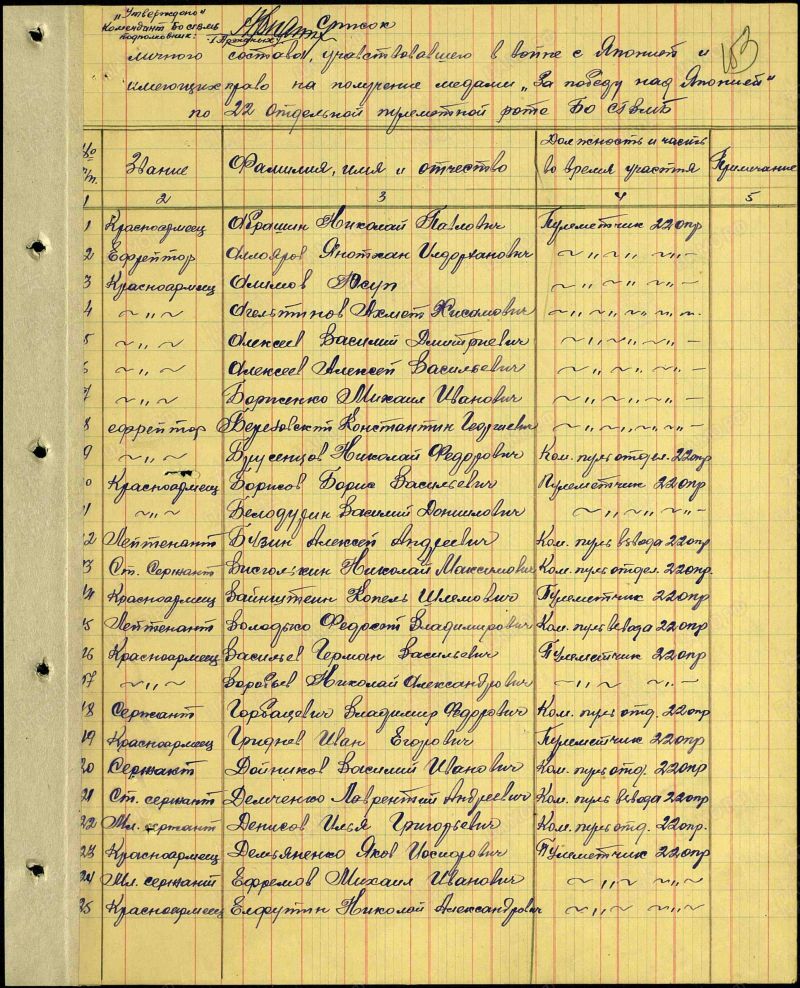 „Утверждаю"
Комендант Бо СВМБ
подполковник:
Список
личного состава, учавствовавшего в войне с Японией и
имеющих право на получение медали „За победу над Японией"
по 22 отдельной пулеметной роте Бо СВМБ
№ п/п. Звание Фамилия, имя и отчество Должность и часть во время участия Примечание
1 2 3 4 5
1 Красноармеец Абрашин Николай Павлович Пулеметчик 22 опр
2 Ефрейтор ~ „ ~ „ ~ „ –
3 Красноармеец Алимов Юсуп ~ „ ~ „ ~ „ –
4 ~ „ ~ Ахмет ~ „ ~ „ ~ „ ~.
5 ~ „ ~ Алексеев Василий Дмитриевич ~ „ ~ „ ~ „ –
6 ~ „ ~ Алексеев Алексей Васильевич ~ „ ~ „ ~ „ –
7 ~ „ ~ Борисенко Михаил Иванович ~ „ ~ „ ~ „ –
8 ефрейтор Березовский Константин Георгиевич ~ „ ~ „ ~ „ –
9 ~ „ ~ Брусенцов Николай Федорович Ком. пульотдел. 22 опр
10 Красноармеец Борисов Борис Васильевич Пулеметчик 22 опр
11 ~ „ ~ Василий Данилович ~ „ ~ „ ~ „ –
12 Лейтенант Бузин Алексей Андреевич Ком. пульвзвода 22 опр
13 Ст. Сержант Николай Максимович Ком. пульотдел. 22 опр.
14 Красноармеец Вайнштейн Копель Шлемович Пулеметчик 22 опр
15 Лейтенант Володько Федосей Владимирович Ком. пульвзвода 22 опр
16 Красноармеец Васильев Герман Васильевич Пулеметчик 22 опр
17 ~ „ ~ Воробьев Николай Александрович ~ „ ~ ~ „ –
18 Сержант Горбацевич Владимир Федорович Ком. пульотд. 22 опр
19 Красноармеец Гриднев Иван Егорович Пулеметчик 22 опр
20 Сержант Дойников Василий Иванович Ком. пульотд. 22 опр
21 Ст. сержант Демченко Лаврентий Андреевич Ком. пульвзвода 22 опр
22 Мл. сержант Денисов Илья Григорьевич Ком. пульотд. 22 опр.
23 Красноармеец Демьяненко Яков Иосифович Пулеметчик 22 опр
24 Мл. сержант Ефремов Михаил Иванович ~ „ ~ ~ „ ~
25 Красноармеец Елфутин Николай Александрович ~ „ ~ ~ „ ~